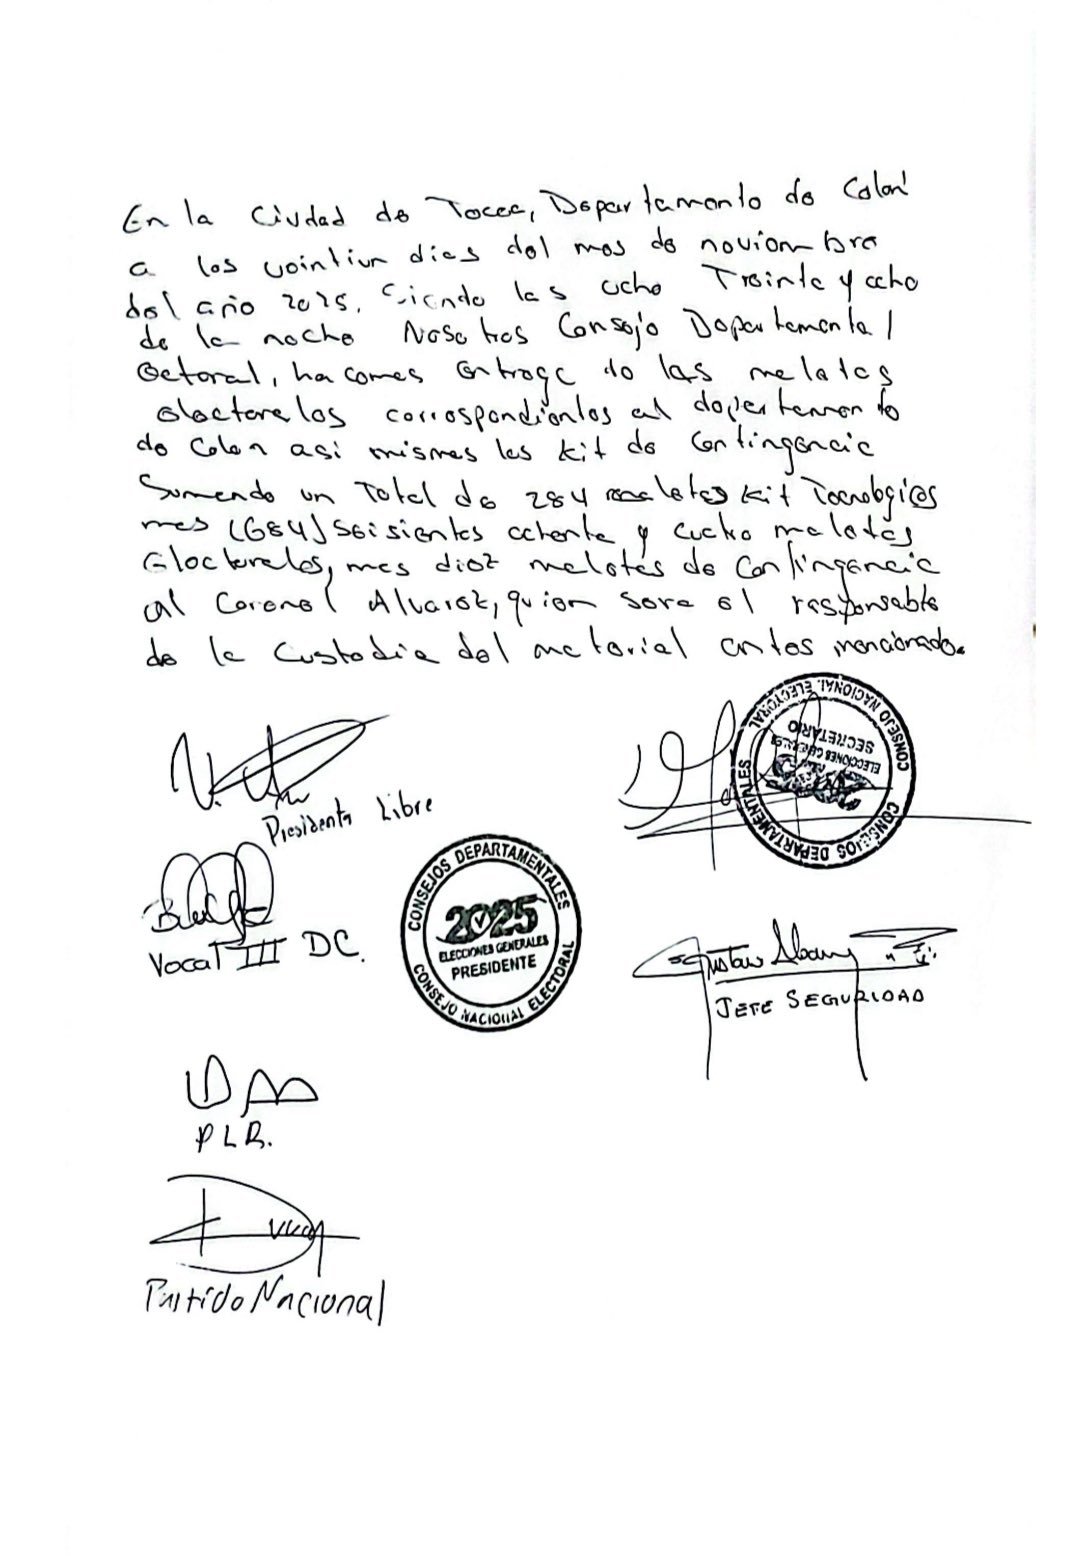 En la Ciudad de Tocoa, Departamento de Colón
a los veintiun dias del mes de noviembre
del año 2025. Siendo las ocho Treinta y ocho
de la noche Nosotros Consejo Departamental
Eectoral, hacemos entrega de las maletas
electorales correspondientes al departemento
de Colon asi mismas las kit de Contingencia
Sumando un Total de 284 maletas kit Tecnologicos
mas (684) Seisientas ochenta y cuatro maletas
Electorales, mas diez maletas de Contingencia
al Coronel Alvarez, quien sera el responsable
de la Custodia del material antes mencionado.
Presidenta Libre
CONSEJO NACIONAL ELECTORAL
CONSEJOS DEPARTAMENTALES
ELECCIONES GENERALES
SECRETARIO
Vocal III DC.
CONSEJOS DEPARTAMENTALES
2025
ELECCIONES GENERALES
PRESIDENTE
CONSEJO NACIONAL ELECTORAL
Gustavo
JEFE SEGURIDAD
PLR.
Partido Nacional